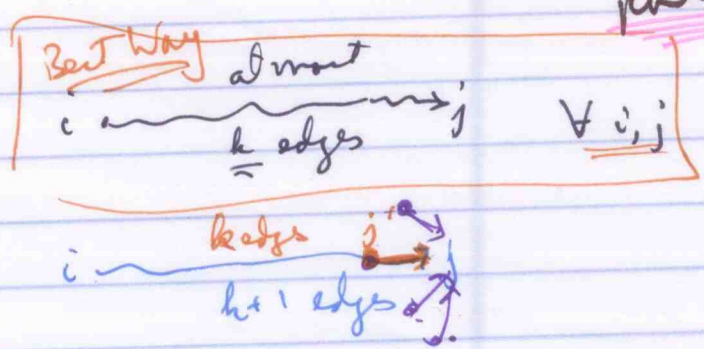 Best Way
atmost
i j ∀ i, j
k edges
k edges j
i j
k+1 edges